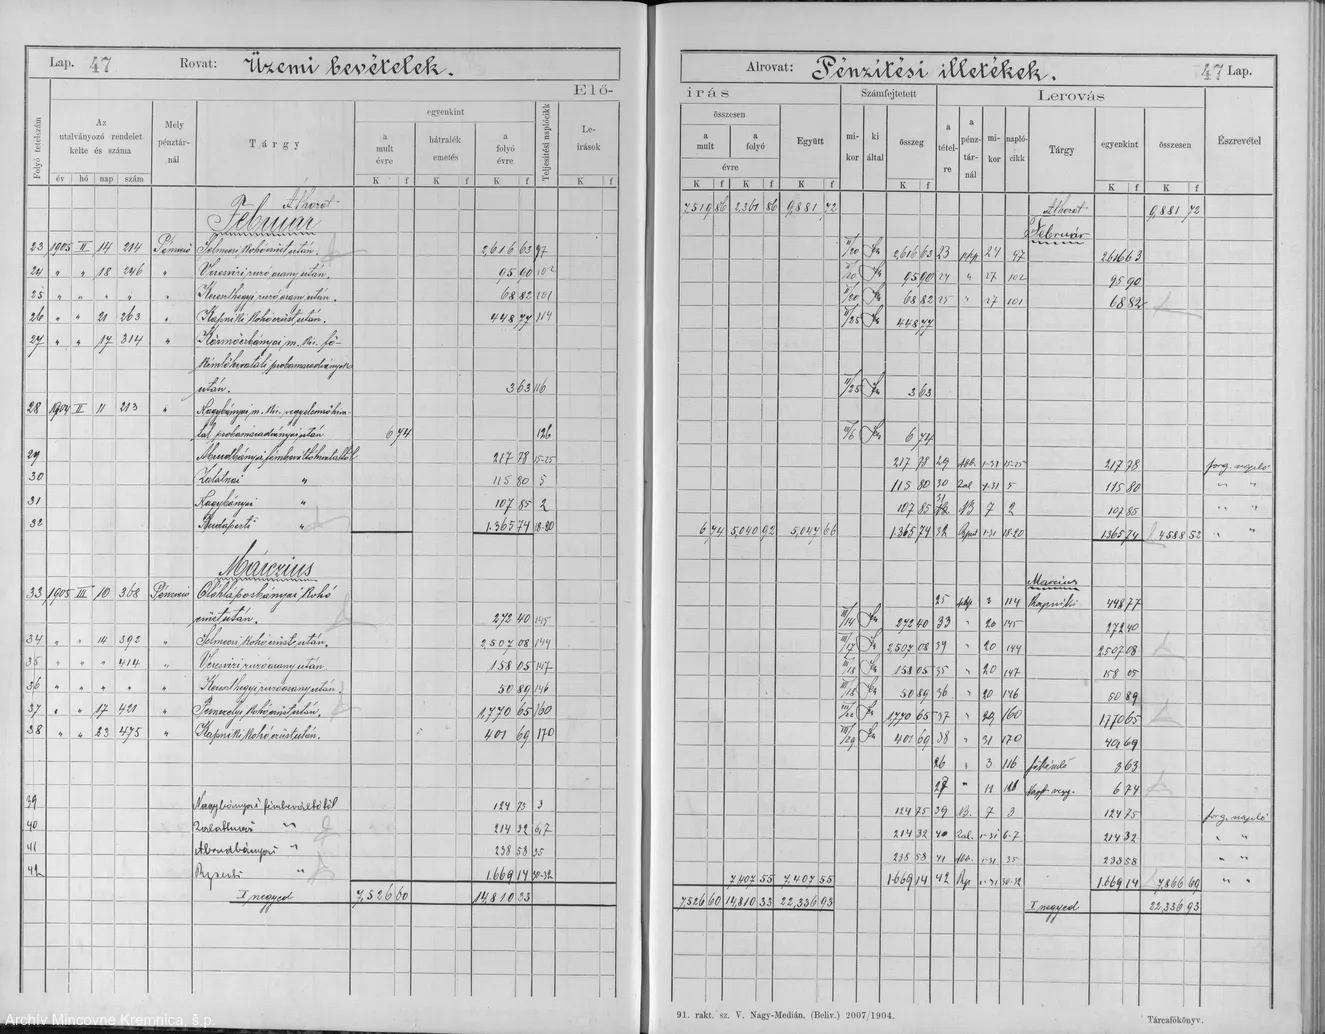 Lap. 47 Rovat: Üzemi bevételek.
Elő-
Folyó tételszám
Az utalványozó rendelet kelte és száma
Mely pénztár-nál
Tárgy
egyenkint
a mult évre
hátralék emelés
a folyó évre
Teljesítési naplócikk
Le-irások
év hó nap szám K f K f K f K f
Áthozat
Február
23 1905 II. 14 214 Selmeci kohóezüst után. 2,616 63 97
24 " " 18 246 " Veresvizi zuzóarany után. 95 90 102
25 " " " " " Kereszthegyi zuzóarany után. 68 82 101
26 " " 21 263 " Kapniki kohóezüst után. 448 77 114
27 " " 17 314 " Körmöczbányai m. kir. fő-
kémlőhivatali próbamaradványok
után. 3 63 116
28 1904 II 11 213 " Nagybányai m. kir. vegyelemző hiva-
tal próbamaradványai után 6 74 126
29 217 78 15-25
30 Zalatnai " 115 80 5
31 Nagybányai " 107 85 2
32 Budapesti " 1.365 74 18-20
Márczius
33 1905 III. 10 368 Oláhláposbányai kohó
ezüst után. 272 40 145
34 " " 14 392 " Selmeci kohóezüst után. 2,507 08 144
35 " " " 414 " Veresvizi zuzóarany után 158 05 147
36 " " " " " Kereszthegyi zuzóarany után. 50 89 146
37 " " 17 421 " Fernezelyi kohóezüst után. 1,770 65 160
38 " " 23 475 " Kapniki kohóezüst után. 401 69 170
39 Nagybányai fémbeváltótól 124 75 3
40 Zalatnai " 214 32 6,7
41 Abrudbányai " 238 58 35
42 Bpesti " 1.669 14 30-32
I negyed 7,526 60 14,810 33
Alrovat: Pénzítési illetékek. 47 Lap.
irás
Számfejtetett
Lerovás
összesen
a mult
a folyó
évre
Együtt
mi-kor
ki által
összeg
a tétel-re
a pénz-tár-nál
mi-kor
napló-cikk
Tárgy
egyenkint
összesen
Észrevétel
K f K f K f K f K f K f
7519 86 2,361 86 9,881 72 Áthozat 9,881 72
Február
II/20 2,616 63 23 27 97 2616 63
II/20 95 90 24 " 27 102 95 90
II/20 68 82 25 " 27 101 68 82
II/25 448 77
II/25 3 63
III/6 6 74
217 78 29 Abr. 1-31 15-25 217 78 forg. napló
115 80 30 Zal 1-31 5 115 80 " "
107 85 31 NB 7 2 107 85 " "
6 74 5,040 92 5,047 66 1365 74 32 Bpest 1-31 18-20 1365 74 4588 52 " "
Március
25 3 114 Kapniki 448 77
III/14 272 40 33 " 20 145 272 40
III/17 2,507 08 34 " 20 144 2507 08
III/18 158 05 35 " 20 147 158 05
III/18 50 89 36 " 20 146 50 89
III/22 1,770 65 37 " 29 160 1770 65
III/29 401 69 38 " 31 170 401 69
26 " 3 116 főkémlő 3 63
27 " 11 vegy. 6 74
124 75 39 B. 7 3 124 75 forg. napló
214 32 40 Zal. 1-31 6-7 214 32 " "
238 58 41 Abr. 1-31 35 238 58 " "
7,407 55 7,407 55 1.669 14 42 Bp. 1-31 30-32 1.669 14 7,866 69 " "
7526 60 14,810 33 22,336 93 I negyed 22,336 93
91. rakt. sz. V. Nagy-Medián. (Beliv.) 2007/1904.
Tárcafőkönyv.
Archív Mincovne Kremnica, š.p.